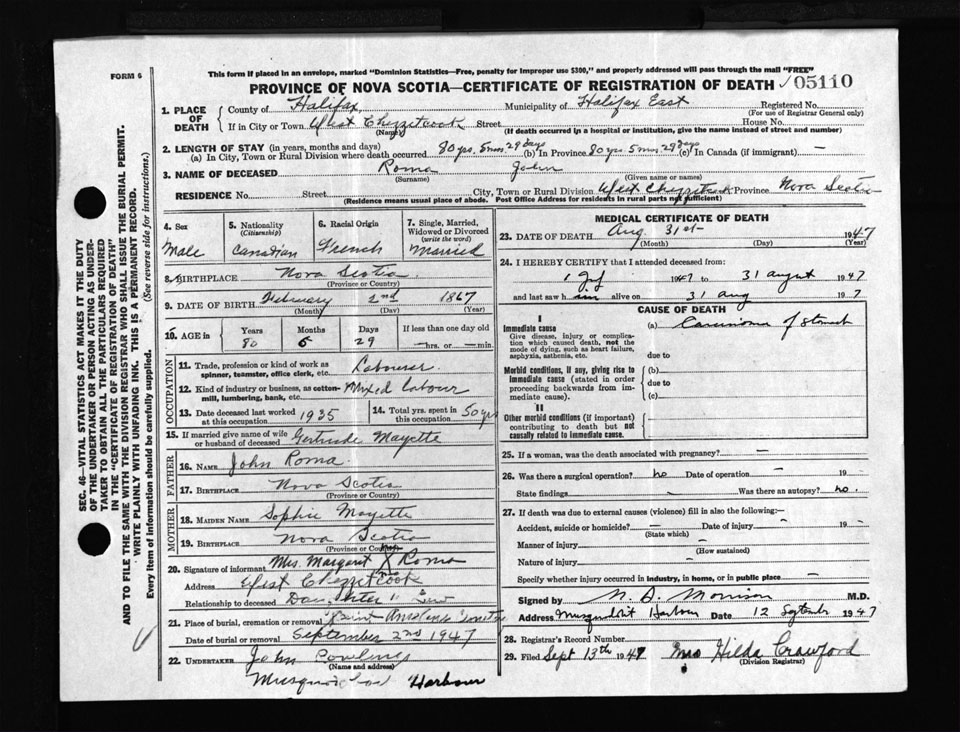 FORM 6
This form if placed in an envelope, marked "Dominion Statistics—Free, penalty for improper use $300," and properly addressed will pass through the mail "FREE"
PROVINCE OF NOVA SCOTIA—CERTIFICATE OF REGISTRATION OF DEATH 05110
1. PLACE OF DEATH
County of Halifax Municipality of Halifax East Registered No.
(For use of Registrar General only)
If in City or Town West Chezzetcook Street House No.
(Name) (If death occurred in a hospital or institution, give the name instead of street and number)
2. LENGTH OF STAY (in years, months and days)
(a) In City, Town or Rural Division where death occurred 80 yrs. 5 mos. 29 days (b) In Province 80 yrs 5 mos. 29 days (c) In Canada (if immigrant) —
3. NAME OF DECEASED Roma John
(Surname) (Given name or names)
RESIDENCE No. Street City, Town or Rural Division West Chezzetcook Province Nova Scotia
(Residence means usual place of abode. Post Office Address for residents in rural parts not sufficient)
4. Sex Male
5. Nationality (Citizenship) Canadian
6. Racial Origin French
7. Single, Married, Widowed or Divorced (write the word) Married
8. BIRTHPLACE Nova Scotia
(Province or Country)
9. DATE OF BIRTH February 2nd 1867
(Month) (Day) (Year)
10. AGE in Years Months Days If less than one day old
80 29 —hrs. or —min.
OCCUPATION
11. Trade, profession or kind of work as spinner, teamster, office clerk, etc. Labourer
12. Kind of industry or business, as cotton-mill, lumbering, bank, etc. Mixed labour
13. Date deceased last worked at this occupation 1935
14. Total yrs. spent in this occupation 50 yrs
15. If married give name of wife or husband of deceased Gertrude Mayette
FATHER
16. NAME John Roma
17. BIRTHPLACE Nova Scotia
(Province or Country)
MOTHER
18. MAIDEN NAME Sophie Mayette
19. BIRTHPLACE Nova Scotia
(Province or Country)
20. Signature of informant Mrs. Margaret X Roma
Address West Chezzetcook
Relationship to deceased Daughter
21. Place of burial, cremation or removal
Date of burial or removal September 2nd 1947
22. UNDERTAKER John
(Name and address)
Harbour
MEDICAL CERTIFICATE OF DEATH
23. DATE OF DEATH Aug. 31st 1947
(Month) (Day) (Year)
24. I HEREBY CERTIFY that I attended deceased from:
1947 to 31 August 1947
and last saw h alive on 31 Aug 1947
CAUSE OF DEATH
I
Immediate cause
Give disease, injury or complication which caused death, not the mode of dying, such as heart failure, asphyxia, asthenia, etc.
(a) Carcinoma of Stomach
due to
Morbid conditions, if any, giving rise to immediate cause (stated in order proceeding backwards from immediate cause).
(b)
due to
(c)
II
Other morbid conditions (if important) contributing to death but not causally related to immediate cause.
25. If a woman, was the death associated with pregnancy? —
26. Was there a surgical operation? no Date of operation — 19 —
State findings — Was there an autopsy? no.
27. If death was due to external causes (violence) fill in also the following:—
Accident, suicide or homicide? — Date of injury — 19 —
(State which)
Manner of injury —
(How sustained)
Nature of injury —
Specify whether injury occurred in industry, in home, or in public place —
Signed by Morrison M.D.
Address Musquodoboit Harbour Date 12 September 1947
28. Registrar's Record Number
29. Filed Sept 13th 1947 Mrs Hilda Crawford
(Division Registrar)
SEC. 46—VITAL STATISTICS ACT MAKES IT THE DUTY
OF THE UNDERTAKER OR PERSON ACTING AS UNDER-
TAKER TO OBTAIN ALL THE PARTICULARS REQUIRED
IN THE "CERTIFICATE OF REGISTRATION OF DEATH"
AND TO FILE THE SAME WITH THE DIVISION REGISTRAR WHO SHALL ISSUE THE BURIAL PERMIT.
WRITE PLAINLY WITH UNFADING INK. THIS IS A PERMANENT RECORD.
Every item of information should be carefully supplied. (See reverse side for instructions.)